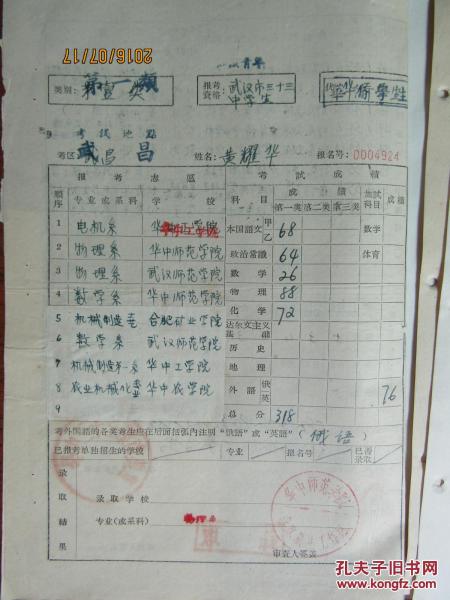 2016/07/17
类别: 第一类
报考资格: 武汉市三十三中学生
华侨學生
考试地點
考区: 武昌
姓名: 黄耀华
报名号: 0004924
报考志愿
考試成績
順序 专业或系科 学校
科目 成績 加試科目 成績
第一类 第二类 第三类
1 电机系 华中工学院
2 物理系 华中师范学院
3 物理系 武汉师范学院
4 数学系 华中师范学院
5 机械制造 合肥矿业学院
6 数学系 武汉师范学院
7 机械制造系 华中工学院
8 农业机械化 华中农学院
9
本国語文 甲乙 68 数学
政治常識 64 体育
数学 26
物理 88
化学 72
达尔文主义基础
历史
地理
外語 俄英 76
总分 318
考外国語的各类考生应在后面括弧内注明“俄語”或“英語”(俄语)
已报考单独招生的学校 专业 报名号 已否录取
录取結果
录取学校
专业(或系科)
华中师范学院
审查人签盖
孔夫子旧书网